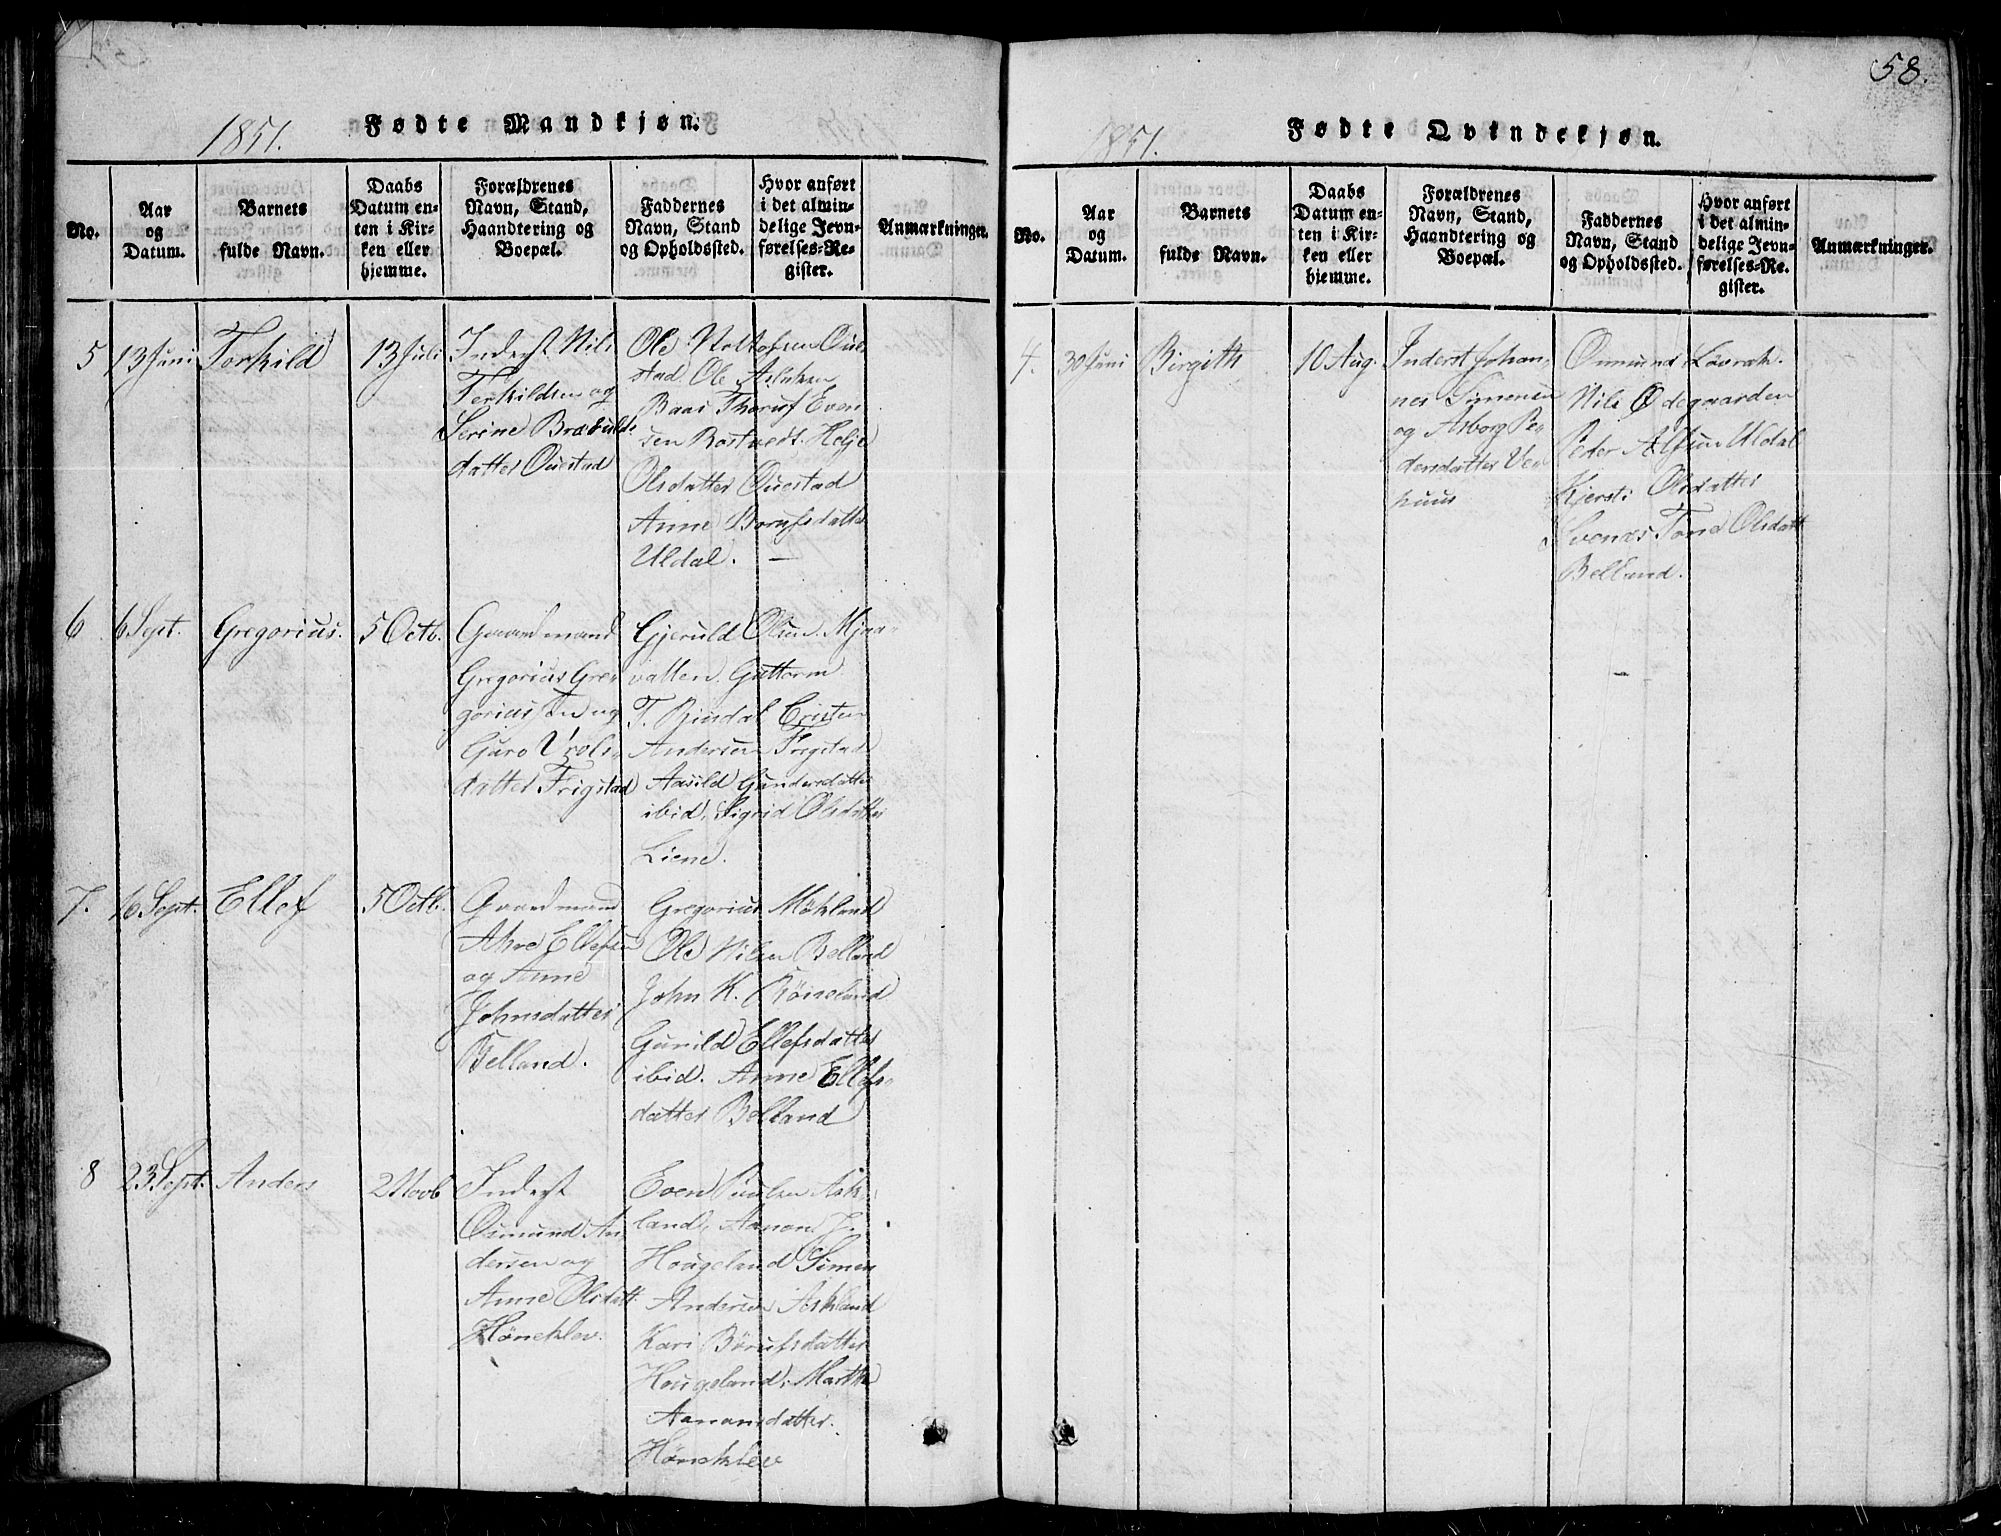 58.
1851. Fødte Mandkjøn.
No.
Aar
og
Datum.
Barnets
fulde Navn.
Daabs
Datum en-
ten i Kir-
ken eller
hjemme.
Forældrenes
Navn, Stand,
Haandtering og
Boepæl.
Faddernes
Navn, Stand
og Opholdssted.
Hvor anført
i det almin-
delige Jevn-
førelses-Re-
gister.
Anmærkninger.
5
13 Juni
Torkild
13 Juli
Inderst Nils
Terkildsen og
Serine Brøsulds
datter Ouestad
Ole
Oue
stad. Ole Aslaksen
Baas Thoruf Even
sen Rostveds. Helje
Olsdatter Ouestad
AnneBorufsdatter
Uldal. —
6
6 Sept.
Gregorius.
5 Octb.
Gaardmand
Gregorius Gre
goriussen og
Guro Trols
datter Frigstad
Gjeruld Olsen Mjaa-
vatten. Guttorm
T. Rindal Cristen
Andersen Frigstad
Aasild Gundersdatter
ibid. Sigrid Olsdatter
Liene.
7.
16 Sept.
Ellef
5 Octb.
Gaardmand
Ahve Ellefsen
og Anne
Johnsdatter
Belland.
Gregorius Møhland
Ole Nilsen Belland
John K. Røiseland
Gunild Ellefsdatter
ibid. Anne Ellefs-
datter Belland
8
23 Sept.
Anders
2 Novb
Inderst
Osmund An
dersen og
Anne Olsdatt.
Høneklev.
Even Paulsen Ask-
land, Aanon J.
Hougeland Simen
Andersen Askland
Kari Børufsdatter
Hougeland, Marthe
Aanonsdatter.
Høneklev
1851. Fødte Qvindekjøn.
No.
Aar
og
Datum.
Barnets
fulde Navn.
Daabs
Datum en-
ten i Kir-
ken eller
hjemme.
Forældrenes
Navn, Stand,
Haandtering og
Boepæl.
Faddernes
Navn, Stand
og Opholdssted.
Hvor anført
i det almin-
delige Jevn-
førelses-Re-
gister.
Anmærkninger.
4.
30 Juni
Birgith
10 Aug.
Inderst Johan-
nes Simensen
og Asborg Pe-
dersdatter Ver
huus
Osmund Løvrak.
Nils Ødegaarden
Peder Alfsen Uldal
Kjersti Olsdatter
Svenæs Tone Olsdatt
Belland.